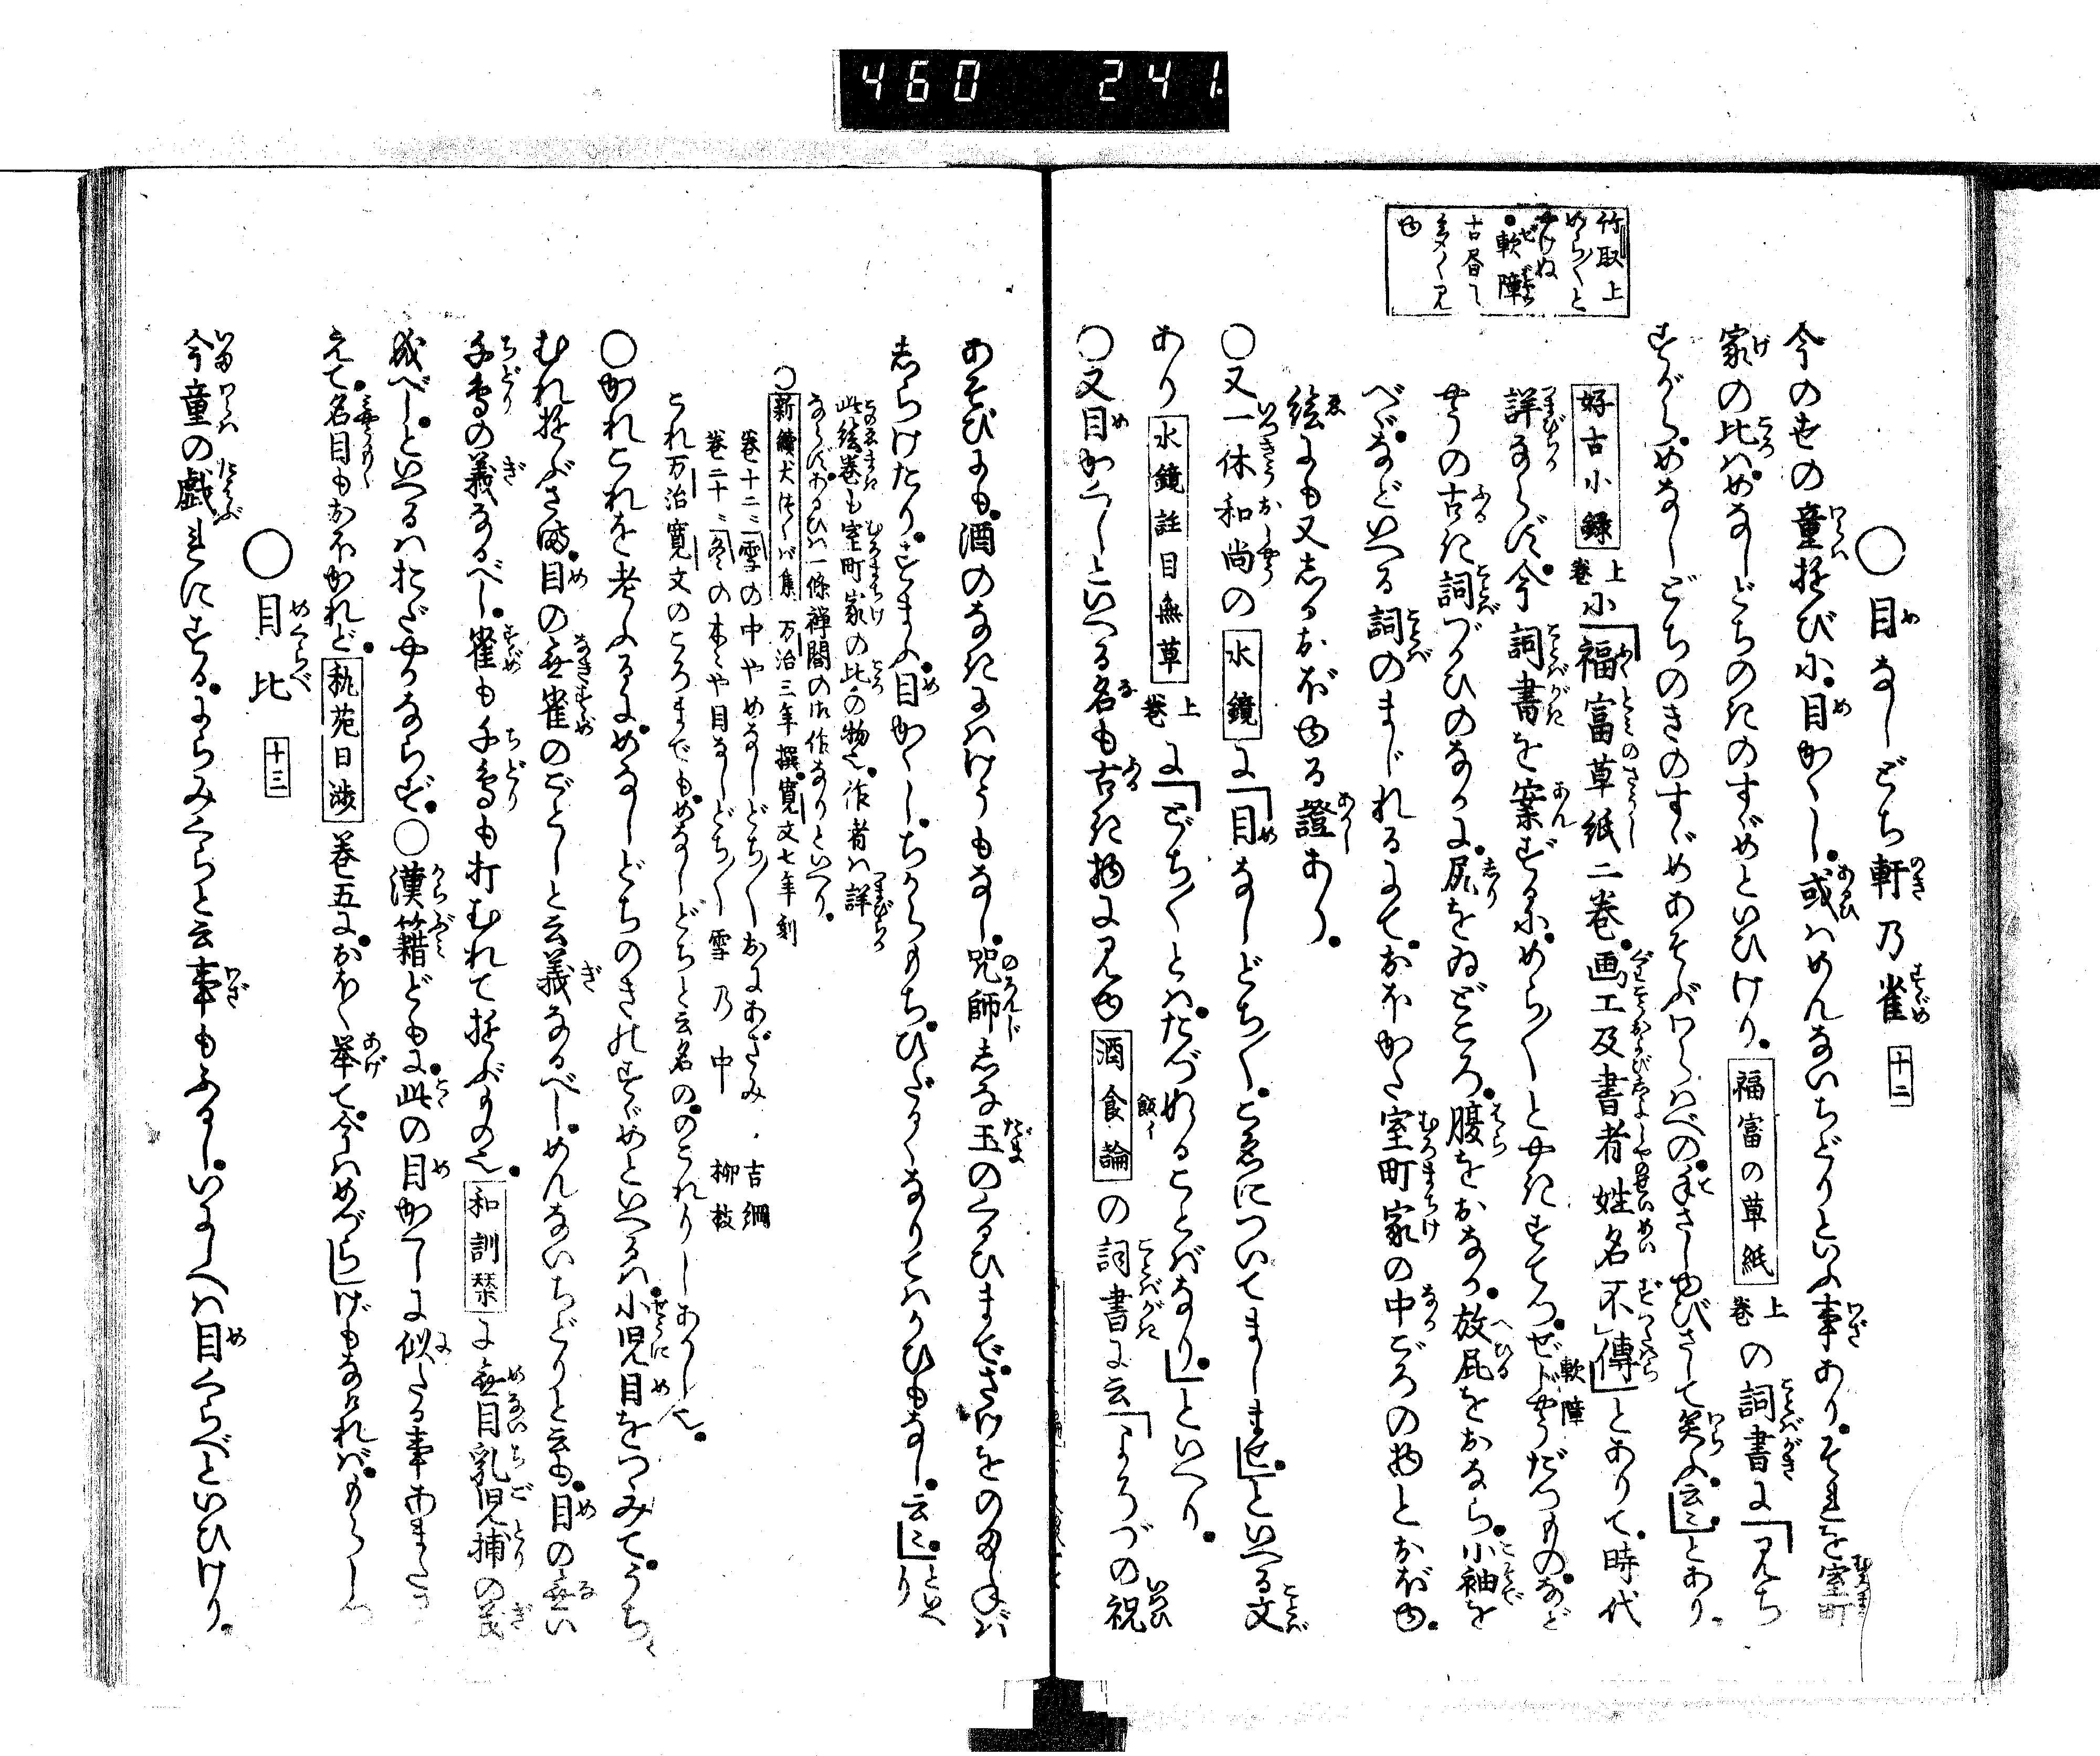 460 241.
竹取上
めらくと
やけぬ
●軟障
古昼て
多くみ
ゆ
○目なしどち軒乃雀 十二
今のせの童遊びに。目かくし。或はめんないちどりといふ事あり。それを室町
家の比は。めなしどちのきのすゞめといひけり。福富の草紙上巻の詞書に「みち
すがら。めなしどちのきのすゞめあそぶわらはべの。手さしゆびさして笑ふ。云々」とあり。
好古小録上巻に「福富草紙二巻。画工及書者姓名不傳」とありて。時代
詳ならず。今詞書を案ずるに。めらくとやきすてつ。ぜじやうだつものなど
やうの古き詞づかひのなかに。尻をゐどころ。腹をおなか。放屁をおなら。小袖を
べゞなどいへる詞のまじれるにて。おほかた室町家の中ごろの物とおぼゆ。
絵にも又しるおぼゆる證あり。
○又一休和尚の水鏡に「目なしどち〳〵。こゑについてましませ」といへる文
あり水鏡註目無草上巻に「どち〳〵とは。たづぬることばなり」といへり。
○又目かくしといへる名も古き物にみゆ酒食論の詞書に云「よろづの祝
あそびにも。酒のなきにはけうもなし。咒師しな玉のくるひまで。さけをのまねば
しらけたり。すまふ。目かくし。ちからもち。ひだるくなりてはかひもなし。云々」といへり
此絵巻も室町家の比の物也。作者は詳
ならず。あるひは一條禅閤の御作なりといへり。
○新續犬筑波集 万治三年撰。寛文七年刻
巻十二「雪の中やめなしどち〳〵おにあざみ 吉綱
巻二十「冬の木々や目なしどち〳〵雪乃中 柳枝
これ万治寛文のころまでも。めなしどちと云名の。のこれりしあかし也。
○かれこれを考ふるに。めなしどちのきのすゞめといへるは。小児目をつゝみて。うち
むれ遊ぶさま。目の無雀のごとしと云義なるべし。めんないちどりと云も。目の無い
千鳥の義なるべし。雀も千鳥も打むれて遊ぶもの也。和訓栞に無目乳児捕の義
成べし。といへるはおだやかならず。○漢籍どもに。此の目かくしに似たる事あまた
えて。名目もおほかれど。秇苑日渉巻五に。おほく挙て。今はめづらしげもなければ。もらし
○目比 十三
今童の戯れにする。にらみくらと云事もふるし。いにしへは目くらべといひけり。